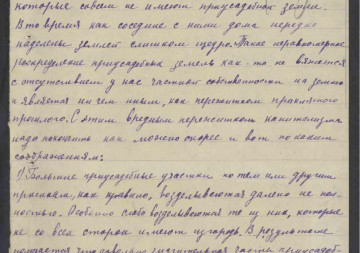 которые совсем не имеют приусадебной земли.
В то время как соседние с ними дома нередко
наделены землей слишком щедро. Такое неравномерное
распределение приусадебных земель как-то не вяжется
с отсутствием у нас частной собственности на землю
и является ни чем иным, как пережитком проклятого
прошлого. С этим вредным пережитком капитализма
надо покончить как можно скорее и вот по каким
соображениям:
1) Большие приусадебные участки по тем или другим
причинам, как правило, возделываются далеко не пол-
ностью. Особенно слабо возделываются те из них, которые
не со всех сторон имеют изгородь. В результате
получается что довольно значительная часть приусадеб-